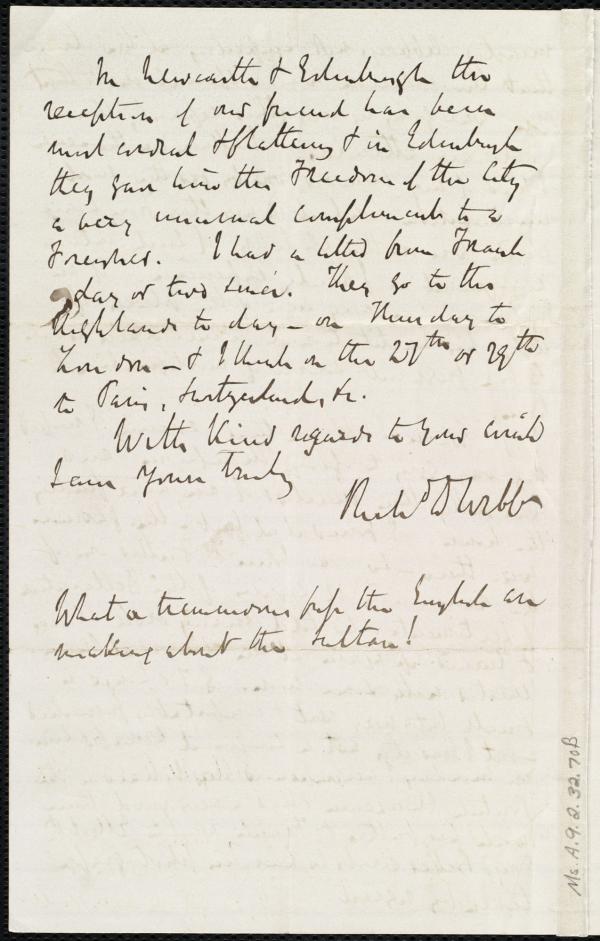 In Newcastle & Edinburgh the
reception of our friend has been
most cordial & flattering & in Edinburgh
they gave him the Freedom of the City
a very unusual compliment to a
Foreigner. I had a letter from Frank
a day or two since. They go to the
Highlands to day – on Thursday to
London – & I think on the 27th or 29th
to Paris, Switzerland, &c.
With kind regards to your circle
I am yours truly
Richd D Webb
What a tremendous fuss the English are
making about the Sultan!
Ms. A. 9. 2. 32. 70B